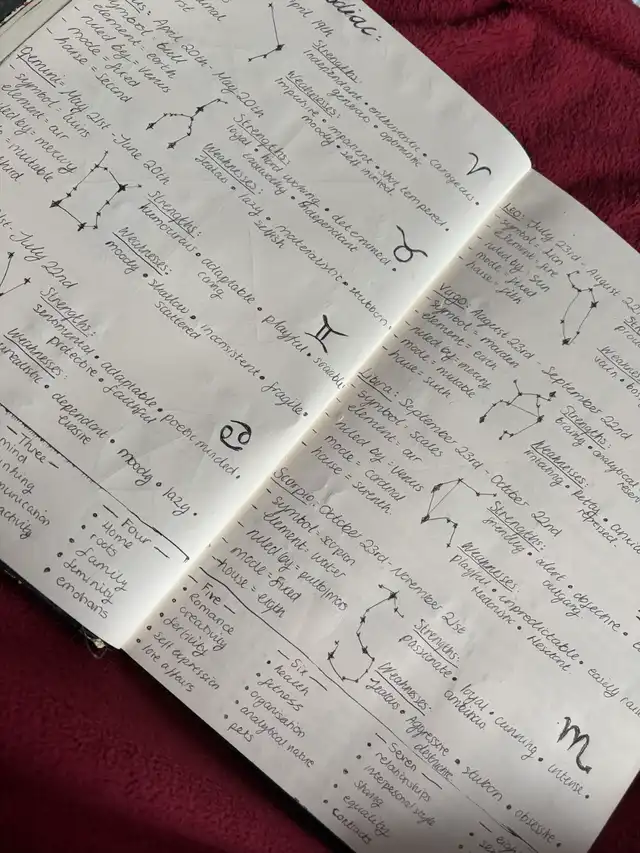 zodiac:
April 19th
Strengths:
Independant • adventurous • corageous •
generous • optimistic
Weaknesses:
impulsive • impatient • short tempered •
moody • self involved
April 20th - May 20th
- symbol = bull
- element = earth
- ruled by = venus
- mode = fixed
- house = second
Strengths:
loyal • hard working • determined •
trustworthy • independant
Weaknesses:
Jealous • lazy • materialistic • stubborn
selfish
Gemini: May 21st - June 20th
symbol = twins
element = air
ruled by = mercury
= mutable
third
Strengths:
humourous • adaptable • playful • sociable
caring
Weaknesses:
moody • shallow • inconsistent • fragile
scattered
July 22nd
Strengths:
sentimental • adaptable • poetic minded •
protective • faithful
Weaknesses:
dependant • moody • lazy •
- Three -
mind
thinking
communication
activity
- Four -
• Home
• roots
• family
• feminity
• emotions
Leo: July 23rd - August 22
- symbol = lion
- element = fire
- ruled by = sun
- mode = fixed
- house = fifth
Weaknesses:
vain
Virgo: August 23rd - September 22nd
- symbol = maiden
- element = earth
- ruled by = mercury
- mode = mutable
- house = sixth
Strengths:
tidy • analytical
Weaknesses:
Libra: September 23rd - October 22nd
- symbol = scales
- element = air
- ruled by = venus
- mode = cardinal
- house = seventh
Strengths:
alert • objective •
outgoing
Weaknesses:
Playful • unpredictable • easily
hedonistic • hesitent
Scorpio: October 23rd - November 21st
- symbol = scorpion
- element = water
- ruled by = pluto/mars
- mode = fixed
- house = eigth
Strengths:
passionate • loyal • cunning • intense •
ambitious
Weaknesses:
Jealous • Aggressive • stuborn • obsessive •
destructive
- Five -
• romance
• creativity
• fertility
• self expression
• love affairs
- Six -
• health
• fitness
• organisation
• analytical nature
• pets
- Seven -
• relationships
• interpersonal style
• sharing
• equality
• contracts
- eigth